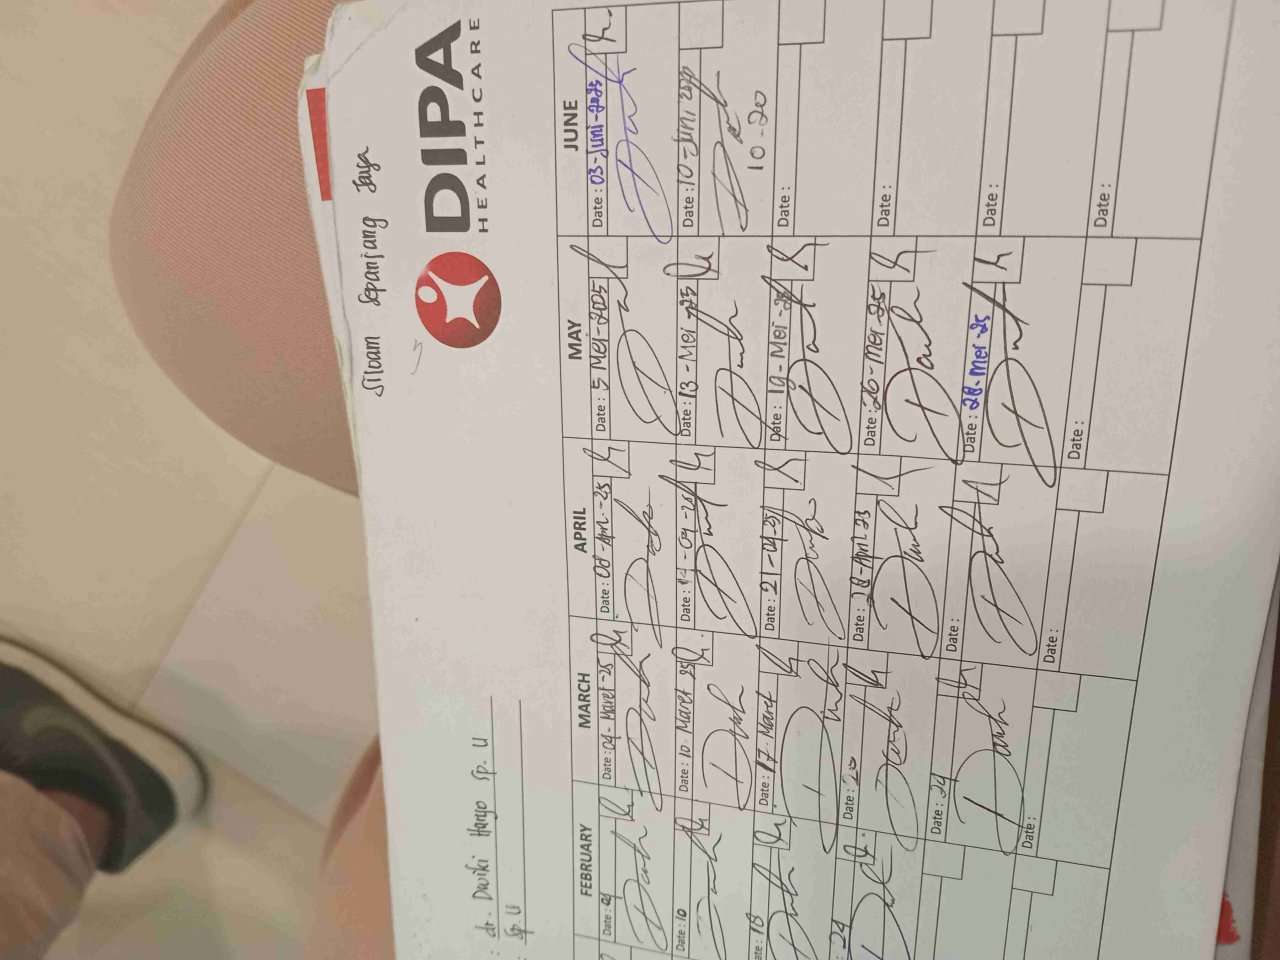 Siloam Sepanjang Jaya
DIPA
HEALTHCARE
: dr. Dwiki Haryo Sp. U
: Sp. U
FEBRUARY MARCH APRIL MAY JUNE
Date: 04 Date: 04-Maret-25 Date: 08-Apri-25 Date: 5 Mei-2025 Date: 03-Juni-2025
Date: 10 Date: 10 Maret 25 Date: -04-25 Date: 13-Mei-25 Date: 10-Juni
10-20
Date: 18 Date: 17 Maret Date: 21-04-25 Date: 19-Mei-25 Date:
24 Date: 20 Date: 28-April 25 Date: 26-Mei-25 Date:
Date: 24 Date: Date: 28-Mei-25 Date:
Date: Date: Date: Date: